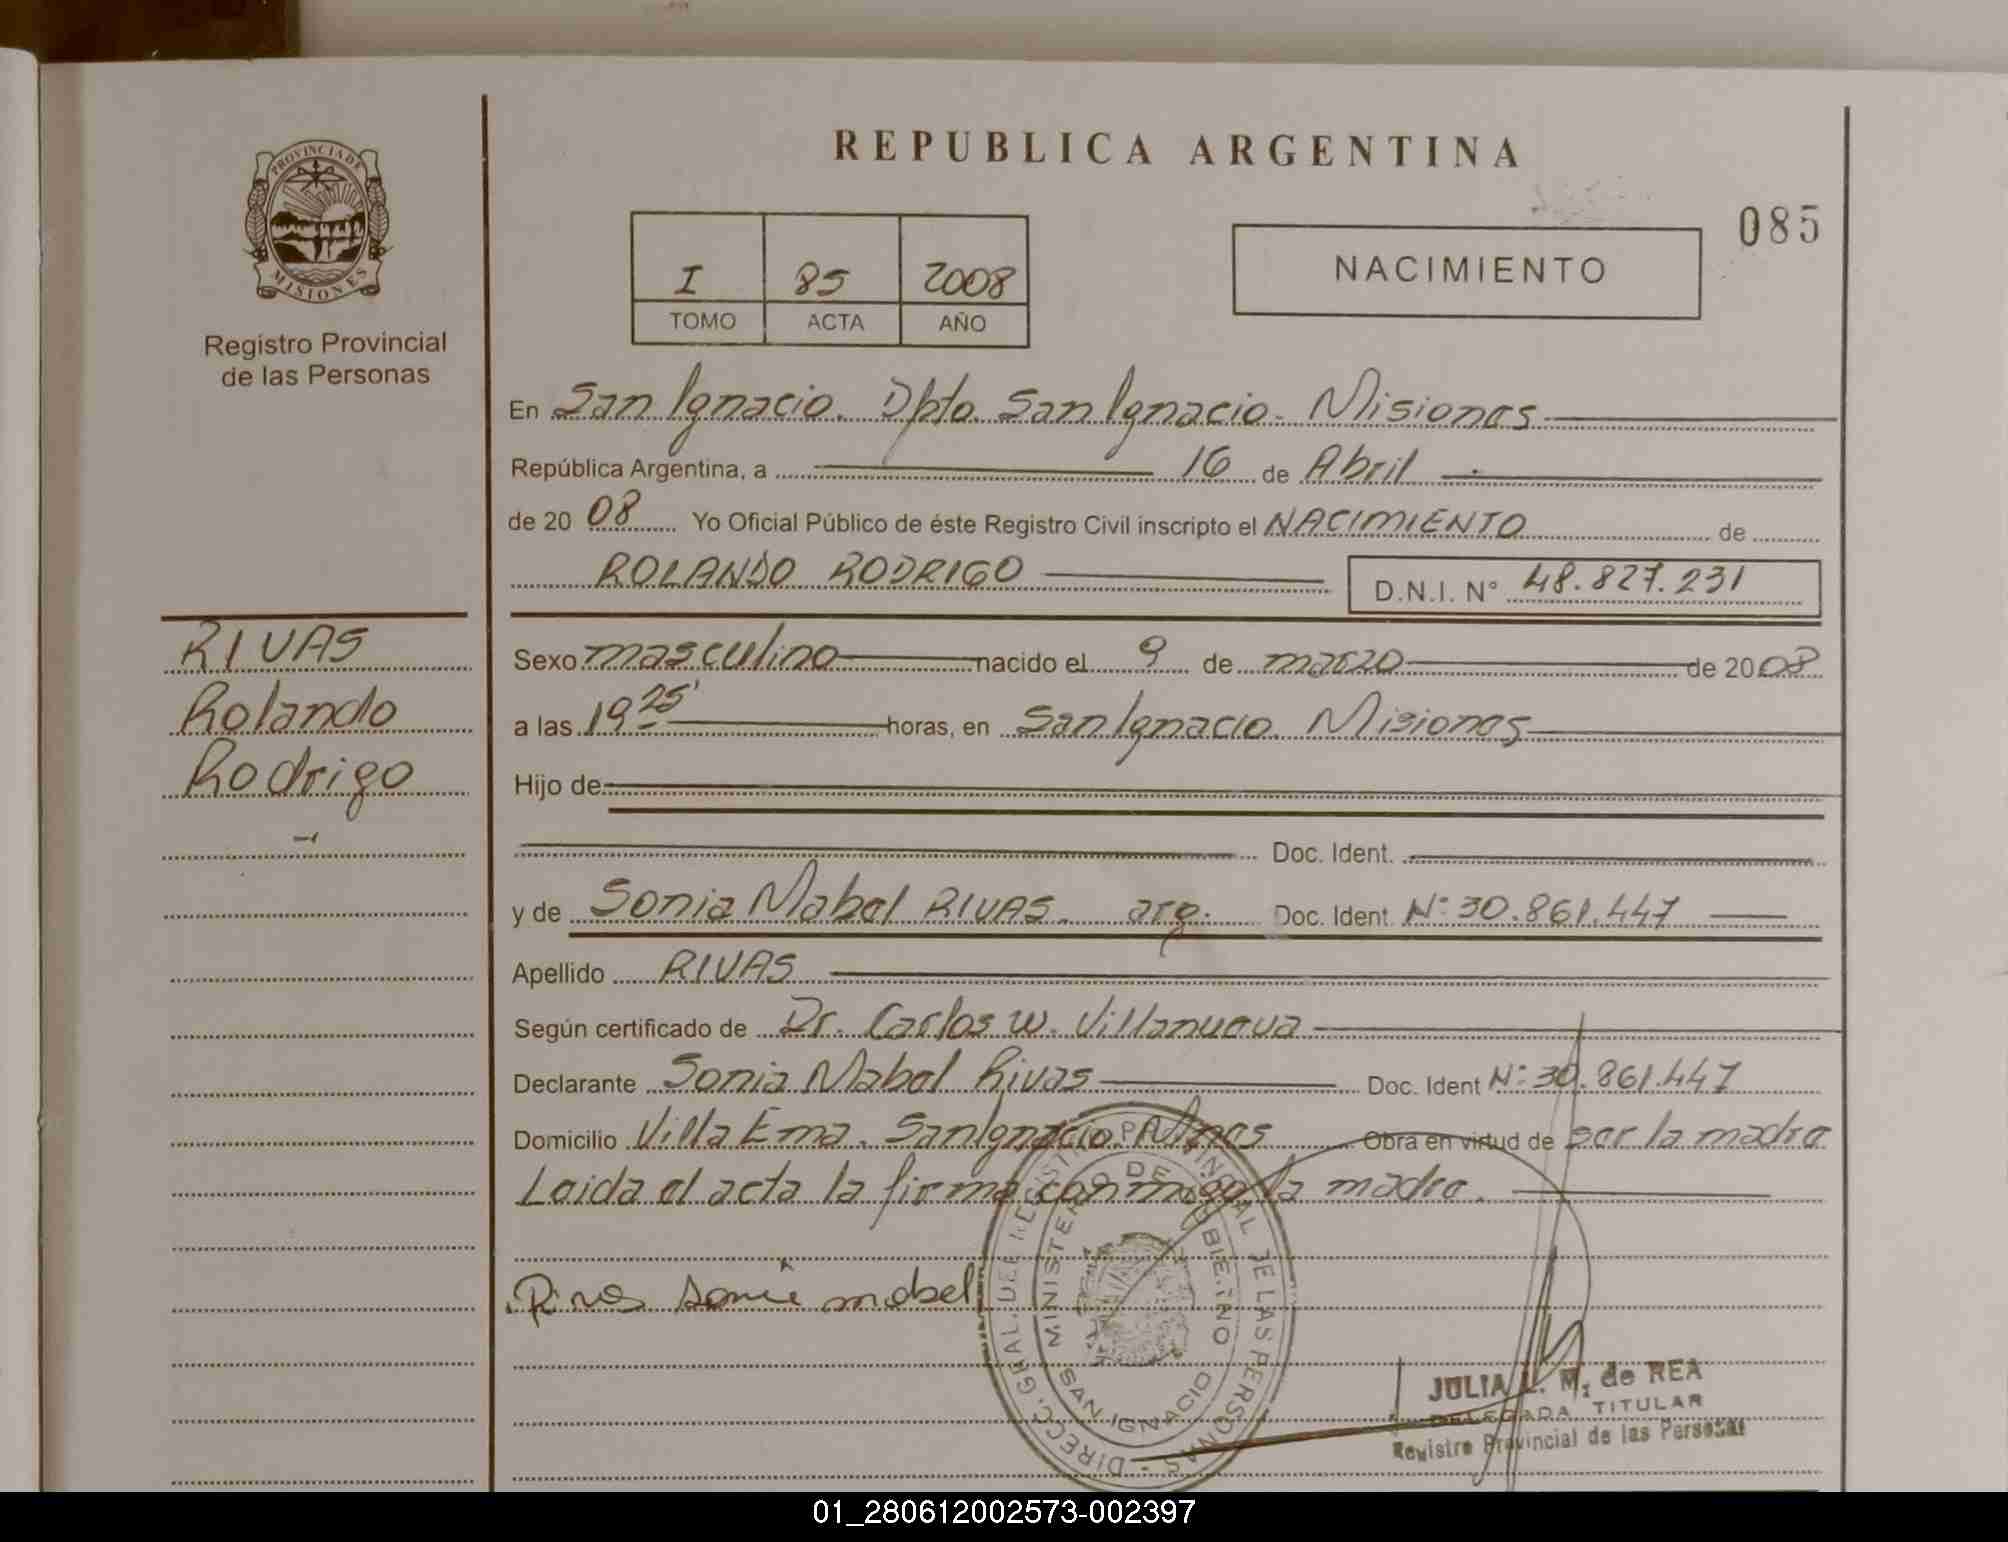 PROVINCIA DE
MISIONES
Registro Provincial
de las Personas
RIVAS
Rolando
Rodrigo
REPUBLICA ARGENTINA
085
I 85 2008
TOMO ACTA AÑO
NACIMIENTO
En San Ignacio. Dpto. San Ignacio. Misiones
República Argentina, a 16 de Abril
de 2008 Yo Oficial Público de éste Registro Civil inscripto el NACIMIENTO de
ROLANDO RODRIGO D.N.I. N° 48.827.231
Sexo masculino nacido el 9 de marzo de 2008
a las 19 25' horas, en San Ignacio. Misiones
Hijo de
Doc. Ident.
y de Sonia Mabel RIVAS. arg. Doc. Ident. N° 30.861.447
Apellido RIVAS
Según certificado de Dr. Carlos W. Villanueva
Declarante Sonia Mabel Rivas Doc. Ident N° 30.861.447
Domicilio Villa Ema. San Ignacio. Mnes Obra en virtud de ser la madre
Leida el acta la firma conmigo la madre.
Rivas Sonia mabel
DIRECC. GRAL. DEL REGISTRO PROVINCIAL DE LAS PERSONAS
MINISTERIO DE GOBIERNO
SAN IGNACIO
JULIA L. M. de REA
DELEGADA TITULAR
Registro Provincial de las Personas
01_280612002573-002397